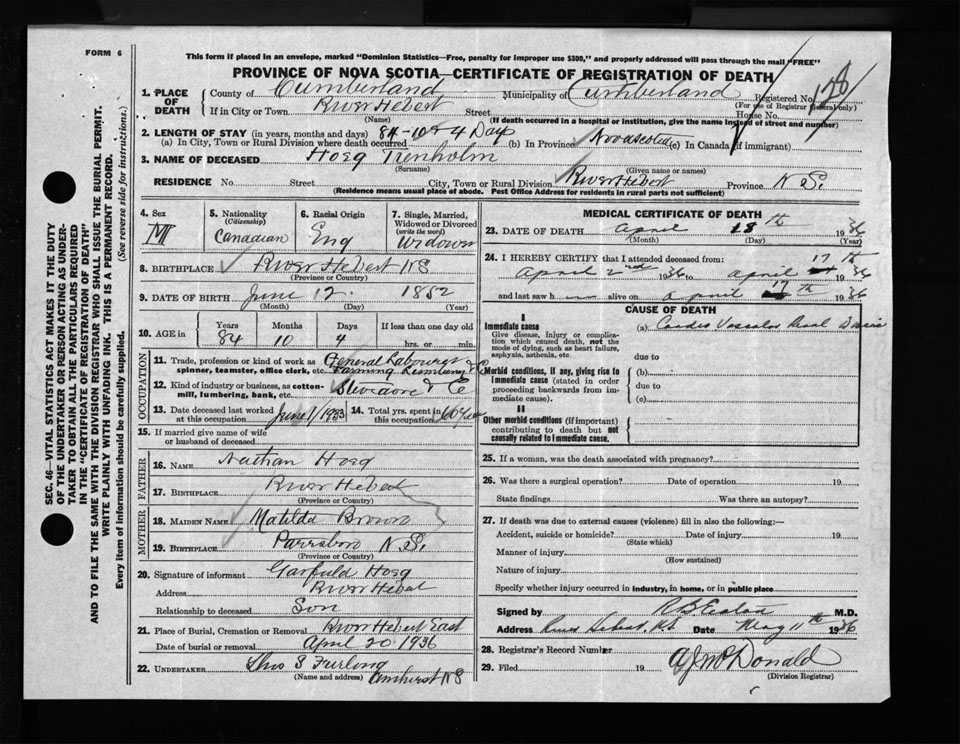 FORM 6
This form if placed in an envelope, marked "Dominion Statistics—Free, penalty for improper use $300," and properly addressed will pass through the mail "FREE"
PROVINCE OF NOVA SCOTIA—CERTIFICATE OF REGISTRATION OF DEATH
1. PLACE OF DEATH
County of Cumberland Municipality of Cumberland Registered No. 128
(For use of Registrar General only)
If in City or Town River Hebert Street House No.
(Name) (If death occurred in a hospital or institution, give the name instead of street and number)
2. LENGTH OF STAY (in years, months and days) 84-10 & 4 Days
(a) In City, Town or Rural Division where death occurred (b) In Province Novascotia (c) In Canada (if immigrant)
3. NAME OF DECEASED Hoeg Trenholm
(Surname) (Given name or names)
RESIDENCE No. Street City, Town or Rural Division River Hebert Province N S.
(Residence means usual place of abode. Post Office Address for residents in rural parts not sufficient)
4. Sex M
5. Nationality (Citizenship) Canadian
6. Racial Origin Eng
7. Single, Married, Widowed or Divorced (write the word) Widower
8. BIRTHPLACE River Hebert NS
(Province or Country)
9. DATE OF BIRTH June 12. 1852
(Month) (Day) (Year)
10. AGE in Years Months Days If less than one day old
84 10 4 hrs. or min.
OCCUPATION
11. Trade, profession or kind of work as spinner, teamster, office clerk, etc. General Labourer Farming Lumbering & C
12. Kind of industry or business, as cotton-mill, lumbering, bank, etc. & C
13. Date deceased last worked at this occupation June 1/1933
14. Total yrs. spent in this occupation 60 Years
15. If married give name of wife or husband of deceased
FATHER
16. NAME Nathan Hoeg
17. BIRTHPLACE River Hebert
(Province or Country)
MOTHER
18. MAIDEN NAME Matilda Brown
19. BIRTHPLACE Parrsboro N.S.
(Province or Country)
20. Signature of informant Garfield Hoeg
Address River Hebert
Relationship to deceased Son
21. Place of Burial, Cremation or Removal River Hebert East
Date of burial or removal April 20 1936
22. UNDERTAKER Thos S Furlong
(Name and address) Amherst NS
MEDICAL CERTIFICATE OF DEATH
23. DATE OF DEATH April 18th 1936
(Month) (Day) (Year)
24. I HEREBY CERTIFY that I attended deceased from:
April 2nd 1936 to April 17th 1936
and last saw h alive on April 17th 1936
CAUSE OF DEATH
I
Immediate cause
Give disease, injury or complication which caused death, not the mode of dying, such as heart failure, asphyxia, asthenia, etc.
(a) Cardio Vascular Renal
due to
Morbid conditions, if any, giving rise to immediate cause (stated in order proceeding backwards from immediate cause).
(b)
due to
(c)
II
Other morbid conditions (if important) contributing to death but not causally related to immediate cause.
25. If a woman, was the death associated with pregnancy?
26. Was there a surgical operation? Date of operation 19
State findings Was there an autopsy?
27. If death was due to external causes (violence) fill in also the following:—
Accident, suicide or homicide? Date of injury 19
(State which)
Manner of injury
(How sustained)
Nature of injury
Specify whether injury occurred in industry, in home, or in public place
Signed by M.D.
Address River Hebert, N.S. Date May 11th 1936
28. Registrar's Record Number
29. Filed 19 A J McDonald
(Division Registrar)
SEC. 46—VITAL STATISTICS ACT MAKES IT THE DUTY
OF THE UNDERTAKER OR PERSON ACTING AS UNDER-
TAKER TO OBTAIN ALL THE PARTICULARS REQUIRED
IN THE "CERTIFICATE OF REGISTRATION OF DEATH"
AND TO FILE THE SAME WITH THE DIVISION REGISTRAR WHO SHALL ISSUE THE BURIAL PERMIT.
WRITE PLAINLY WITH UNFADING INK. THIS IS A PERMANENT RECORD.
Every item of information should be carefully supplied. (See reverse side for instructions.)